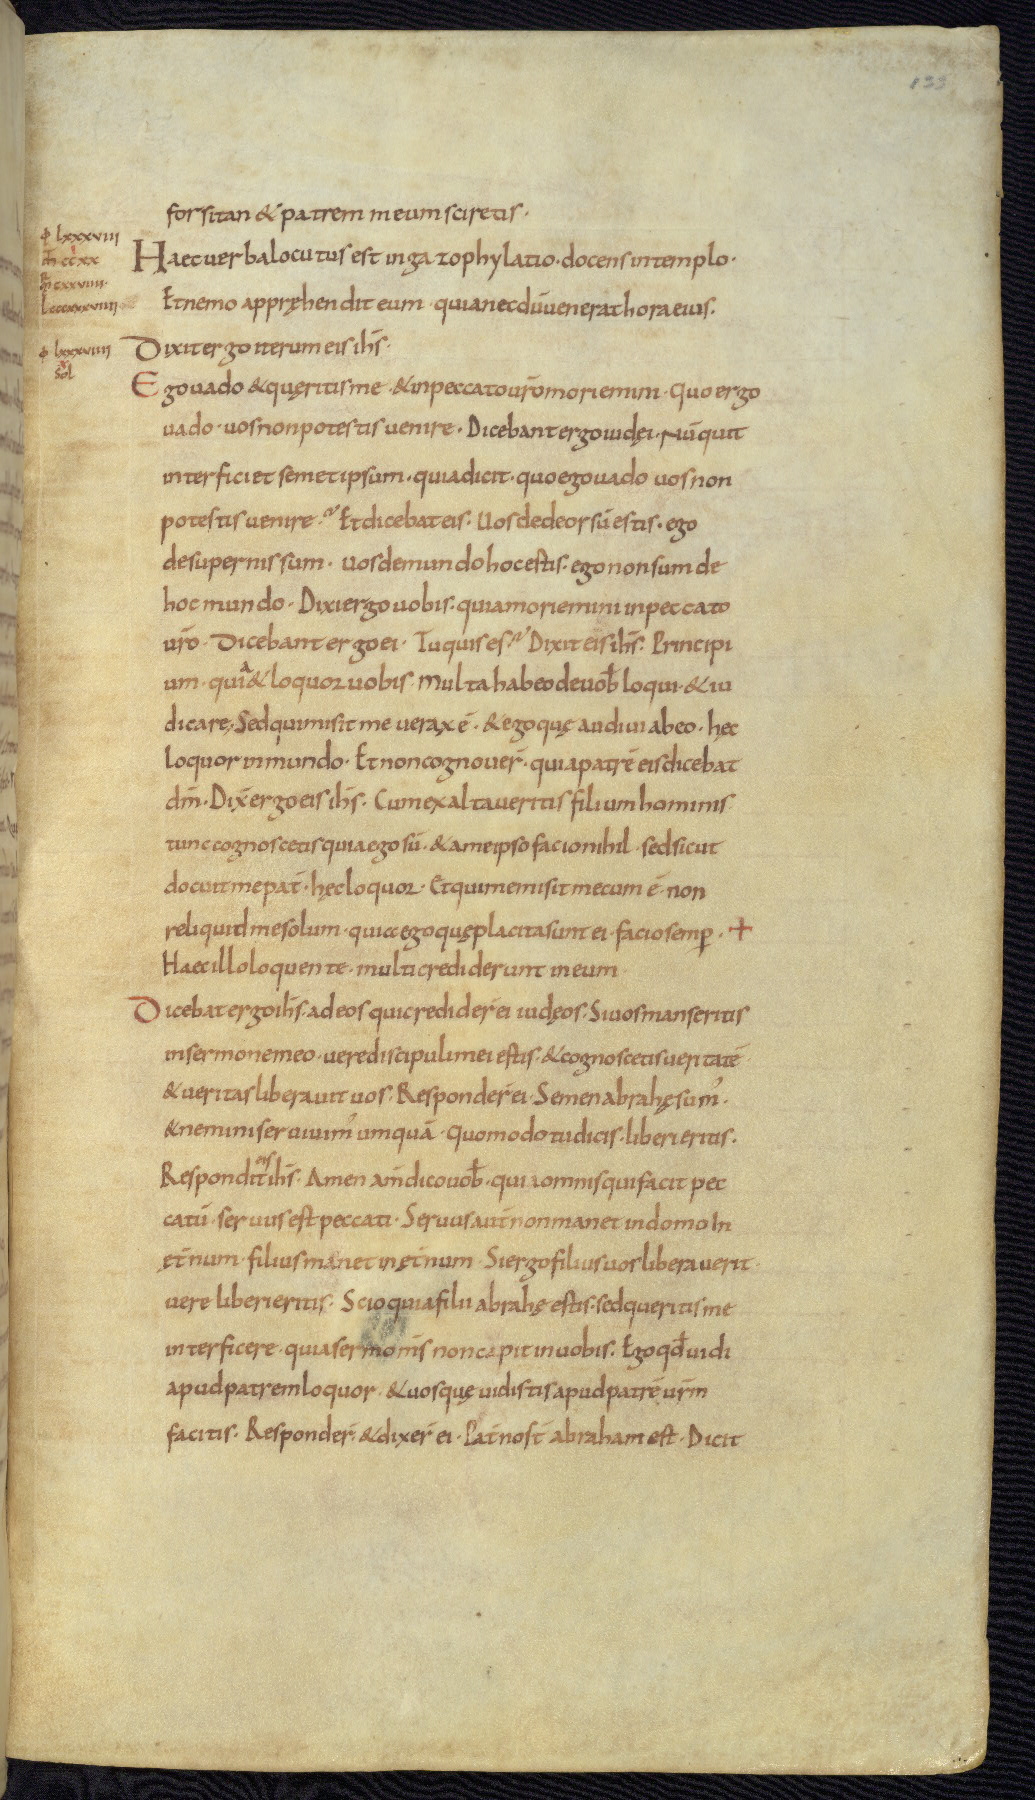 133
forsitan & patrem meum sciretis·
φ lxxxviii
m̄ ccxx
m̄ cxxviiii
l ccxxxviiii
Haec verba locutus est in gazophylatio· docens in templo·
Et nemo appręhendit eum· quia necdū venerat hora eius.
φ lxxxviiii
sol
Dixit ergo iterum eis ihs̄·
Ego uado & quęritis me· & in peccato ur̄o moriemini· Quo ergo
uado· uos non potestis uenire· Dicebant ergo iudęi· Nūquit
interficiet semetipsum· quia dicit· quo ego uado uos non
potestis uenire? Et dicebat eis· Uos de deorsū estis· ego
de supernis sum· Uos de mundo hoc estis· ego non sum de
hoc mundo· Dixi ergo uobis· quia moriemini in peccato
ur̄o· Dicebant ergo ei· Tu quis es? Dixit eis ihs̄· Principi
um· quia & loquor uobis· Multa habeo de uob̄ loqui· & iu
dicare, Sed qui misit me verax ē· & ego quę audiui ab eo· hęc
loquor in mundo· Et non cognover̄· quia patrē eis dicebat
dm̄· Dix̄ ergo eis ihs̄· Cum exaltaveritis filium hominis
tunc cognoscetis quia ego sū· & a me ipso facio nihil· sed sicut
docuit me pat̄· hęc loquor· Et qui me misit mecum ē· non
reliquid me solum· quia ego quę placita sunt ei· facio semp̄· +
Haec illo loquente· multi crediderunt in eum
Dicebat ergo ihs̄· ad eos qui credider̄ ei iudęos· Si uos manseritis
in sermone meo· vere discipuli mei estis· & cognoscetis veritatē
& veritas liberavit uos· Responder̄ ei· Semen abrahę sum᾽·
& nemini servivim᾽ umquā· Quomodo tu dicis· liberi eritis·
Respondit eis ihs̄· Amen am̄ dico uob̄· quia omnis qui facit pec
catū· servus est peccati· Servus aut̄ non manet in domo In
ęt̄num· filius manet in ęt̄num· Si ergo filius uos liberaverit·
vere liberi eritis· Scio quia filii abrahę estis· sed queritis me
interficere· quia sermo meis non capit in uobis· Ego qd̄ uidi
apud patrem loquor· & uos quę uidistis apud patrē ur̄m
facitis· Responder̄· & dixer̄ ei· Pat̄ nost̄ abraham est· Dicit